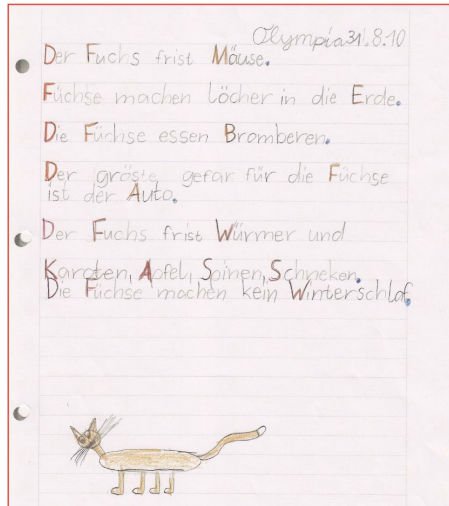 Olympia 31.8.10
Der Fuchs frist Mäuse.
Füchse machen löcher in die Erde.
Die Füchse essen Bromberen.
Der gröste gefar für die Füchse
ist der Auto.
Der Fuchs frist Würmer und
Karoten, Apfel, Spinen, Schneken.
Die Füchse machen kein Winterschlaf.